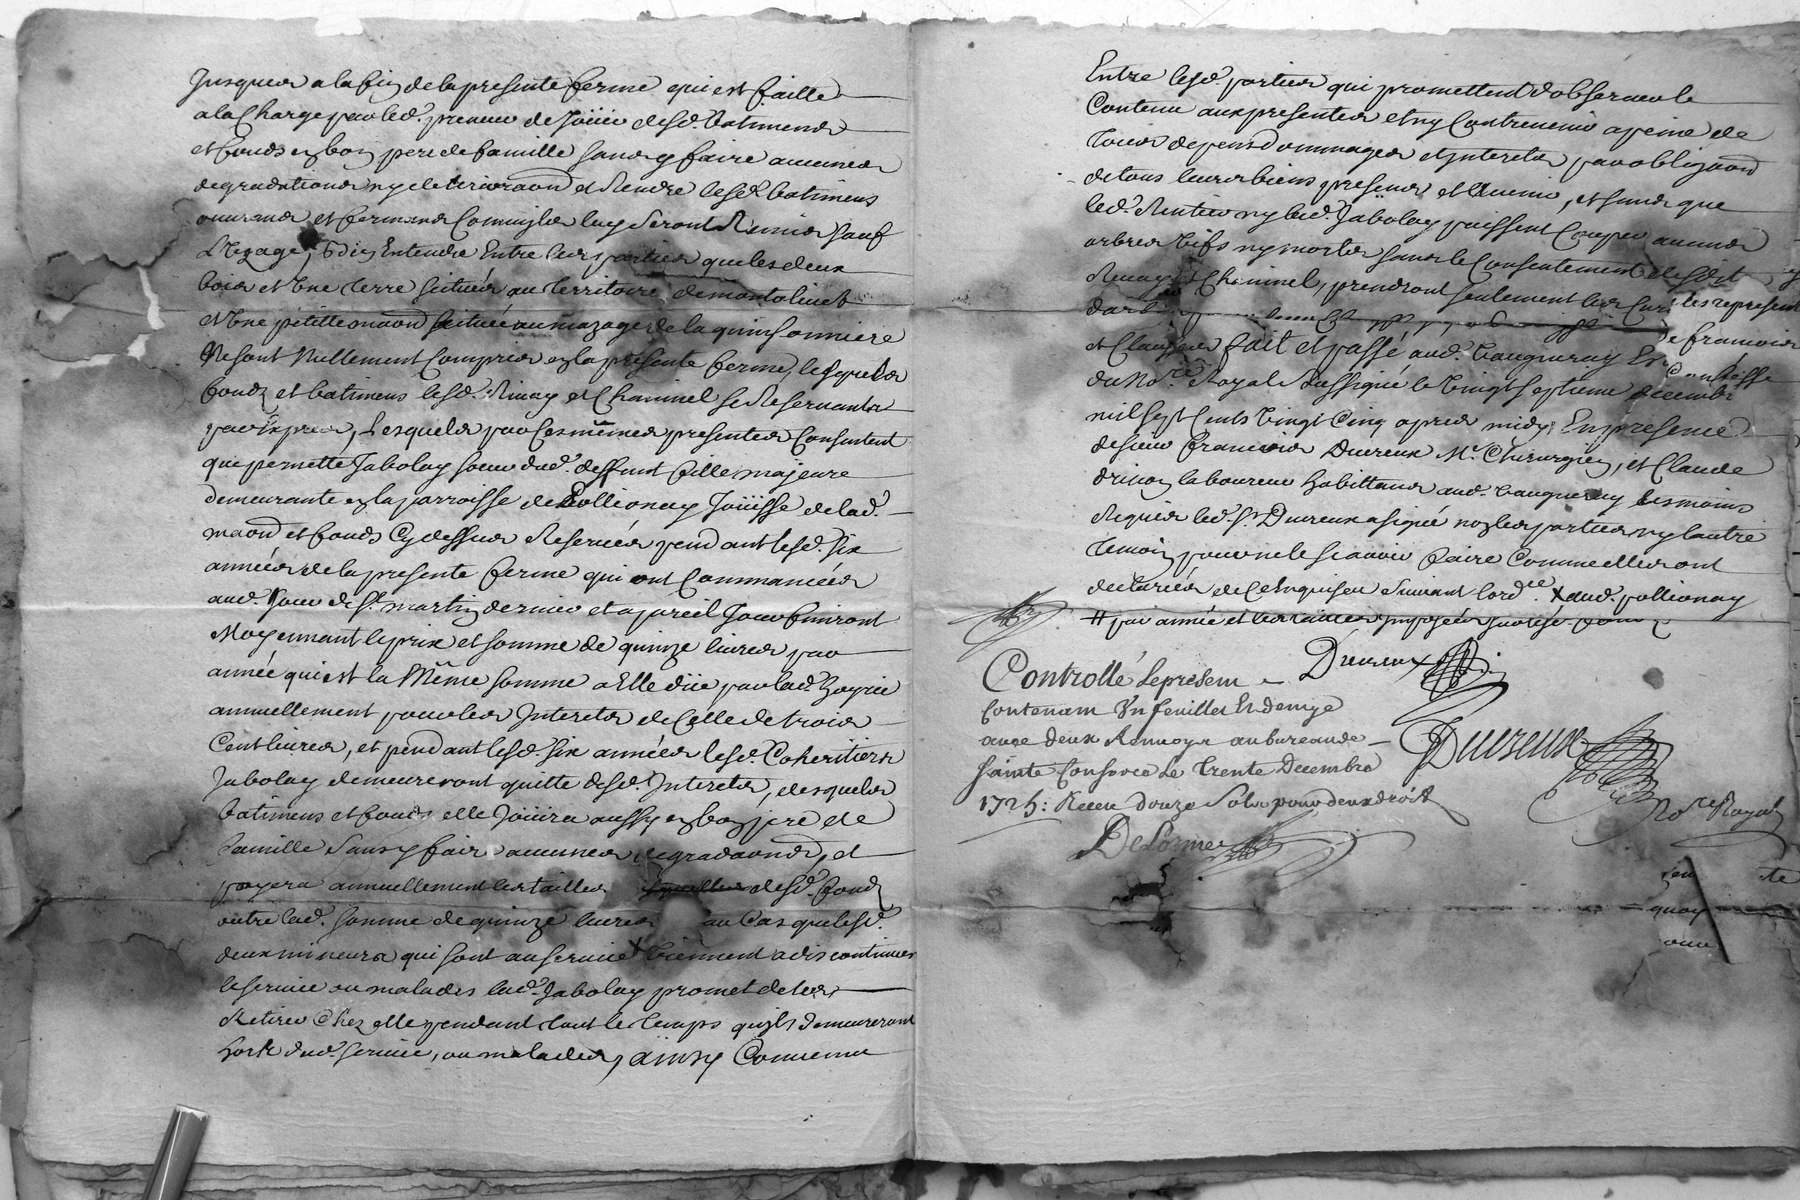 Jusques a la fin de la presente ferme qui est faitte
a la Charge par led. preneur de Joüir desd. batimens
et fonds en bon pere de famille sans y faire aucunes
degradations ny deterioraons et Rendre lesd. batimens
ouvrans et fermans Comme ils luy seront Remis sauf
L'Uzage, Entendu Entre les parties que les deux
bois et Une terre scituée au territoire de montolivet
et Une petitte maison scituée au mazage de la quinsonniere
Ne sont Nullement Compris en la presente ferme, lesquels
fonds et batimens lesd. Rivay et Chaninel se Reservants
par Exprès, Lesquels par Ces mêmes presentes Consentent
que pernette Jabolay soeur dud. deffunt fille majeure
demeurante en la parroisse de Pollionay Joüisse de lad.
maon et fonds Cy dessus Reservés pendant lesd. six
années de la presente ferme qui ont Commancées
aud. Jour de St. martin dernier et a pareil Jour finiront
Moyennant le prix et somme de quinze livres par
année qui est la Même somme a Elle düe par lad. hoyrie
annuellement pour les Interets de Celle de trois
Cent livres, et pendant lesd. six années lesd. Coheritiers
Jabolay demeureront quitte desd. Interets, desquels
batimens et fonds elle Joüira aussy en bon pere de
famille Sans y faire aucunes degradaons, et
payera annuellement les tailles desd. fonds
outre lad. somme de quinze livres au Cas que lesd.
deux mineurs qui sont au service X viennent a discontinuer
le service ou malades lad. Jabolay promet de les
Retirer Chez elle pendant tout le temps qu'ils demeureront
hors dud. service, ou malades, ainsy Convenu
Entre lesd. parties qui promettent d'observer le
Contenu aux presentes et ny Contrevenir a peine de
tous depens dommages et Interets par obligaon
de tous leurs biens presens et a venir, et sans que
led. Rentier ny lad. Jabolay puissent Couper aucuns
arbres vifs ny morts sans le Consentement desdt
Rivay et Chaninel, prendront seulement les
et Claude fait et passé aud. Vaugneray
du Nore. Royal Soussigné le vingt septieme decembre
mil sept Cents vingt Cinq apres midy En presence
de sieur François Dureux Me. Chirurgien, et Claude
laboureur habittans aud. Vaugneray tesmoins
Requis led. Sr. Dureux a signé non les parties ny l'autre
temoin pour ne le sçavoir faire Comme elles ont
declarées de Ce Enquises Suivant l'orde. X aud. pollionay
# par année et les tailles
Controllé Le present
Contenan Un feuillet Et demye
avec deux Renvoys au bureau de
Sainte Consorce Le Trente Decembre
1725: Receu douze Sols pour deux droits
DeLorme
Dureux
Dureux
No.re Royal
quoy